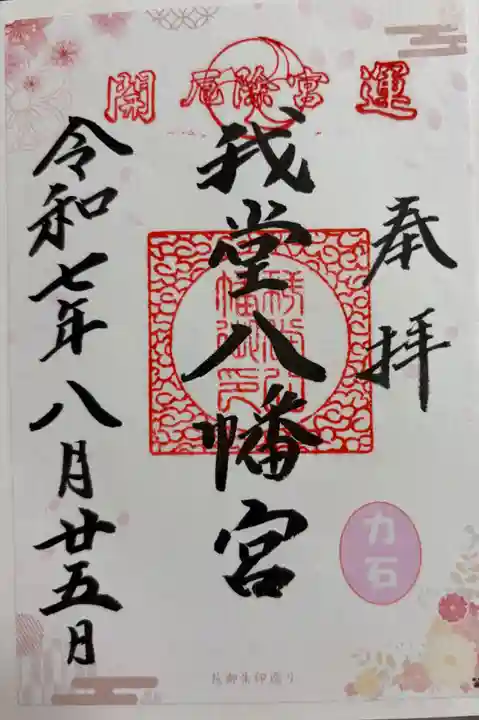 開 厄除宮 運
奉拝
我堂八幡宮
力石
令和七年八月廿五日